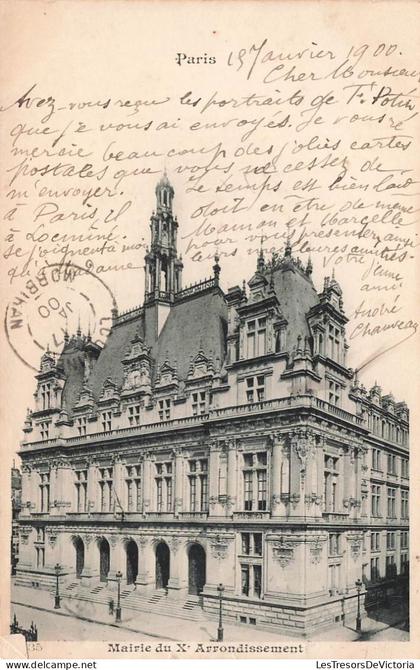 Paris
15 Janvier 1900.
Cher Monsieur
Avez-vous reçu les portraits de
que je vous ai envoyés. Je vous re
mercie beaucoup des jolies cartes
postales que vous ne cessez de
m'envoyer. Le temps est bien laid
à Paris, il doit en être de meme
à Locminé. Maman et Marcelle
se joignent à moi pour vous présenter ainsi
que Madame leurs meilleures amitiés
Votre
jeune
ami.
André
Chauveau
MORBIHAN
00
35
Mairie du Xe Arrondissement
© www.LesTresorsDeVictoria